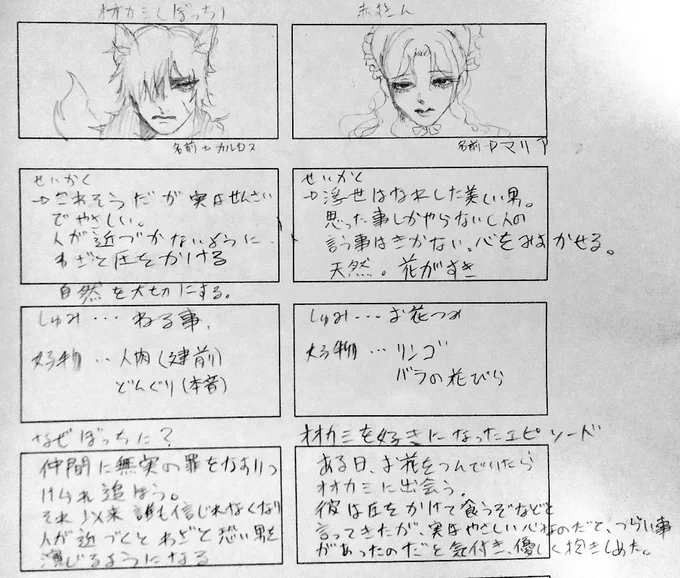 オオカミ(ぼっち)
名前→カルロス
せいかく
→こわそうだが実はせんさい
でやさしい。
人が近づかないように、
わざと圧をかける
自然を大切にする。
しゅみ…ねる事、
好物…人肉(建前)
どんぐり(本音)
なぜぼっちに?
仲間に無実の罪をなすりつ
けられ追ほう。
それ以来誰も信じれなくなり
人が近づくとわざと恐い男を
演じるようになる
赤ずきん
名前→マリア
せいかく
→浮世はなれした美しい男。
思った事しかやらないし人の
言う事はきかない。心をみすかせる。
天然。花がすき
しゅみ…お花つみ
好物…リンゴ
バラの花びら
オオカミを好きになったエピソード
ある日、お花をつんでいたら
オオカミに出会う。
彼は圧をかけて食うぞなどと
言ってきたが、実はやさしい心なのだと、つらい事
があったのだと気付き、優しく抱きしめた。